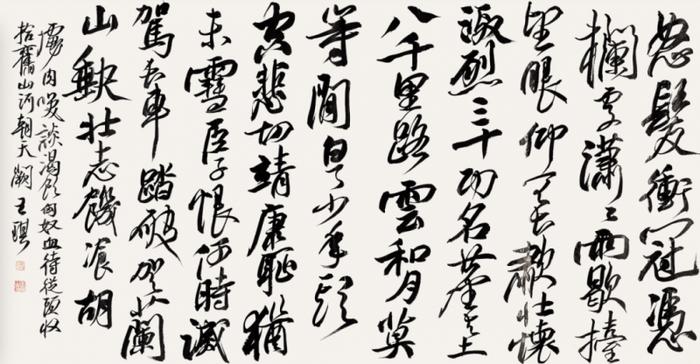 怒髮衝冠憑
欄處瀟〻雨歇擡
望眼仰天長嘯壯懷
激烈三十功名塵與土
八千里路雲和月莫
等閒白了少年頭
空悲切靖康恥猶
未雪臣子恨何時滅
駕長車踏破賀蘭
山缺壯志饑飡胡
虜肉笑談渴飲匈奴血待從頭收
拾舊山河朝天闕 王琪